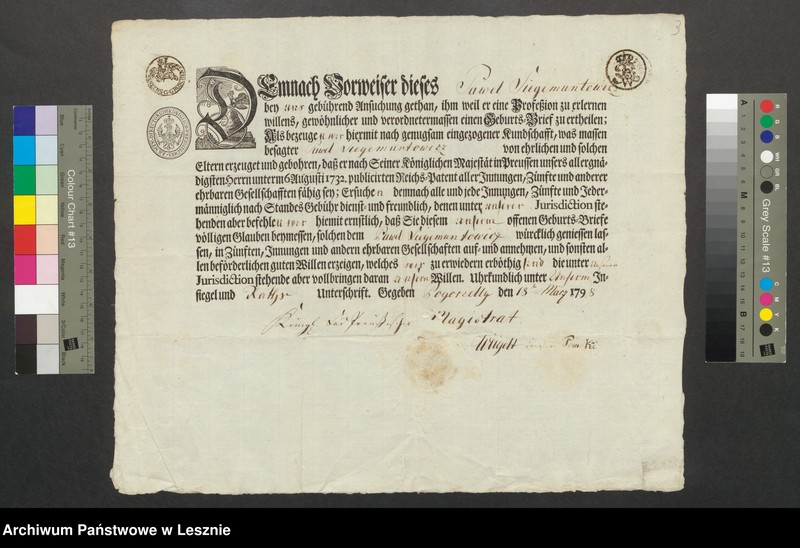 3
Demnach Vorweiser dieses Pawel Siegemuntowicz
bey uns gebührend Ansuchung gethan, ihm weil er eine Profeßion zu erlernen
willens, gewöhnlicher und verordnetermassen einen Geburts-Brief zu ertheilen;
Als bezeugen wir hiermit nach genugsam eingezogener Kundschafft, was massen
besagter Pawel Siegemuntowicz von ehrlichen und solchen
Eltern erzeuget und gebohren, daß er nach Seiner Königlichen Majestät in Preussen unsers allergnä-
digsten Herrn unterm 6 Augusti 1732. publicirten Reichs-Patent aller Innungen, Zünfte und anderer
ehrbaren Gesellschafften fähig sey; Ersuchen demnach alle und jede Innungen, Zünfte und Jeder-
männiglich nach Standes Gebühr dienst- und freundlich, denen unter unserer Jurisdiction ste-
henden aber befehlen wir hiemit ernstlich, daß Sie diesem unserm offenen Geburts-Briefe
völligen Glauben beymessen, solchen dem Pawel Siegemuntowicz würcklich geniessen las-
sen, in Zünften, Innungen und andern ehrbaren Gesellschaften auf- und annehmen, und sonsten al-
len beförderlichen guten Willen erzeigen, welches wir zu erwiedern erböthig sind die unter unserer
Jurisdiction stehende aber vollbringen daran unsern Willen. Uhrkundlich unter Unserm In-
siegel und Unterschrift. Gegeben den 13 Marz 1798
Königl. Magistrat
Colour Chart #13
Blue
Cyan
Green
Yellow
Red
Magenta
White
3/Color
Black
Grey Scale #13
A
M
B
R
G
B
W
C
M
Y
K
Archiwum Państwowe w Lesznie